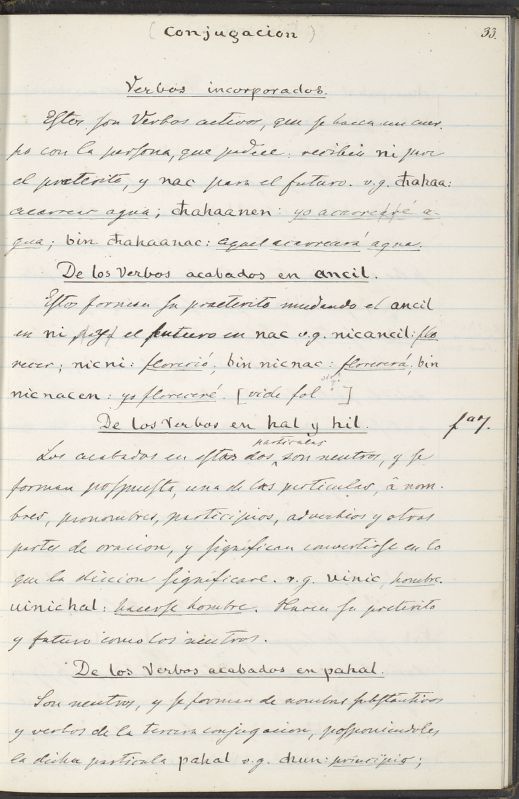 ( Conjugacion )
33.
Verbos incorporados.
Estos son Verbos activos, que se hacen un cuer-
po con la persona, que padece: reciben ni para
el preterito, y nac para el futuro. v.g. chahaa:
acarrear agua; chahaanen: yo acarreé a-
gua; bin chahaanac: aquel acarreará agua.
De los Verbos acabados en ancil.
Estos forman su praeterito mudando el ancil
en ni y el futuro en nac v.g. nicancil: flo
recer; nicni: floreció; bin nicnac: florecerá; bin
nicnacen: yo floreceré. [vide fol ]
De los Verbos en hal y hil.
fo 7.
particulas
Los acabados en estas dos son neutros, y se
forman pospuesta, una de las particulas, â nom-
bres, pronombres, participios, adverbios y otras
partes de oracion, y significan convertirse en lo
que la diccion significare. v.g. uinic, hombre
uinichal: hacerse hombre. Hacen su preterito
y futuro como los neutros.
De los Verbos acabados en pahal.
Son neutros, y se forman de nombres substantivos
y verbos de la tercera conjugacion, posponiendoles
la dicha particula pahal v.g. chun: principio;